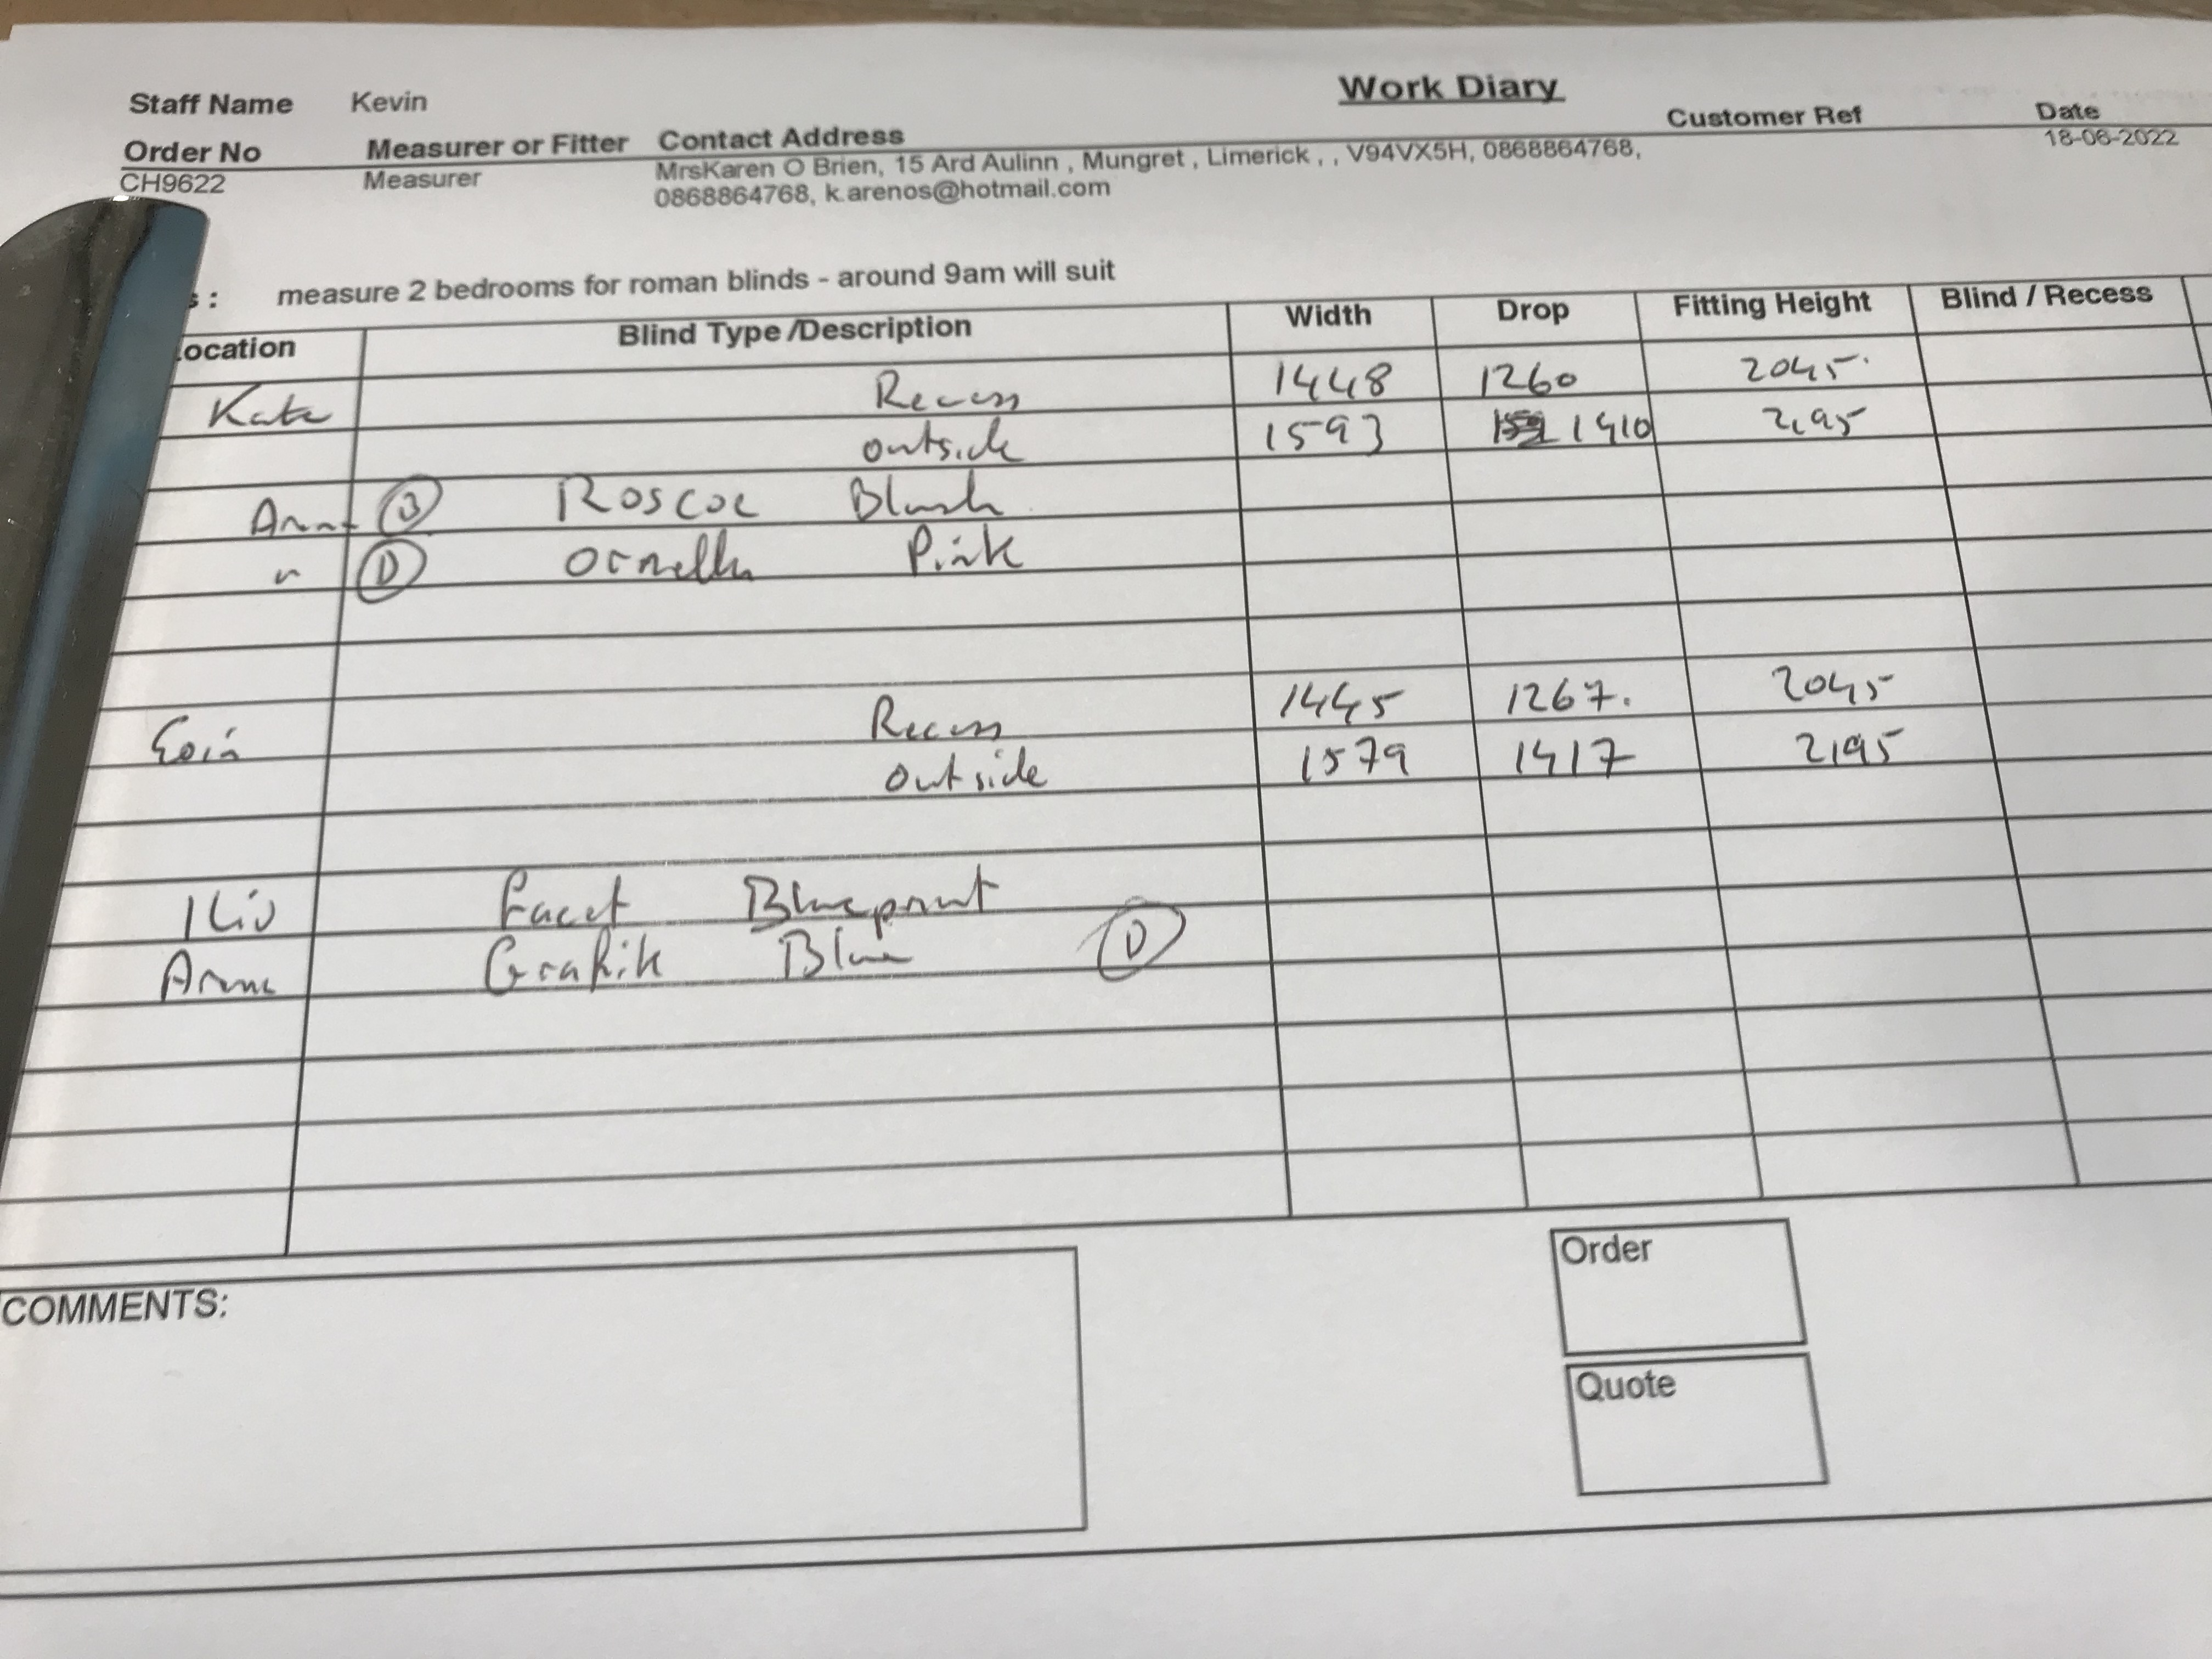 Work Diary
Staff Name Kevin
Order No Measurer or Fitter Contact Address Customer Ref Date
CH9622 Measurer MrsKaren O Brien, 15 Ard Aulinn , Mungret , Limerick , , V94VX5H, 0868864768, 18-06-2022
0868864768, k.arenos@hotmail.com
s : measure 2 bedrooms for roman blinds - around 9am will suit
ocation Blind Type /Description Width Drop Fitting Height Blind / Recess
Kate Recess 1448 1260 2045.
outside 1593 1410 2195
B Roscoe Blush
D Ornella Pink
Eoin Recess 1445 1267. 2045
outside 1579 1417 2195
Facet Blueprint
Grafik Blue D
COMMENTS:
Order
Quote